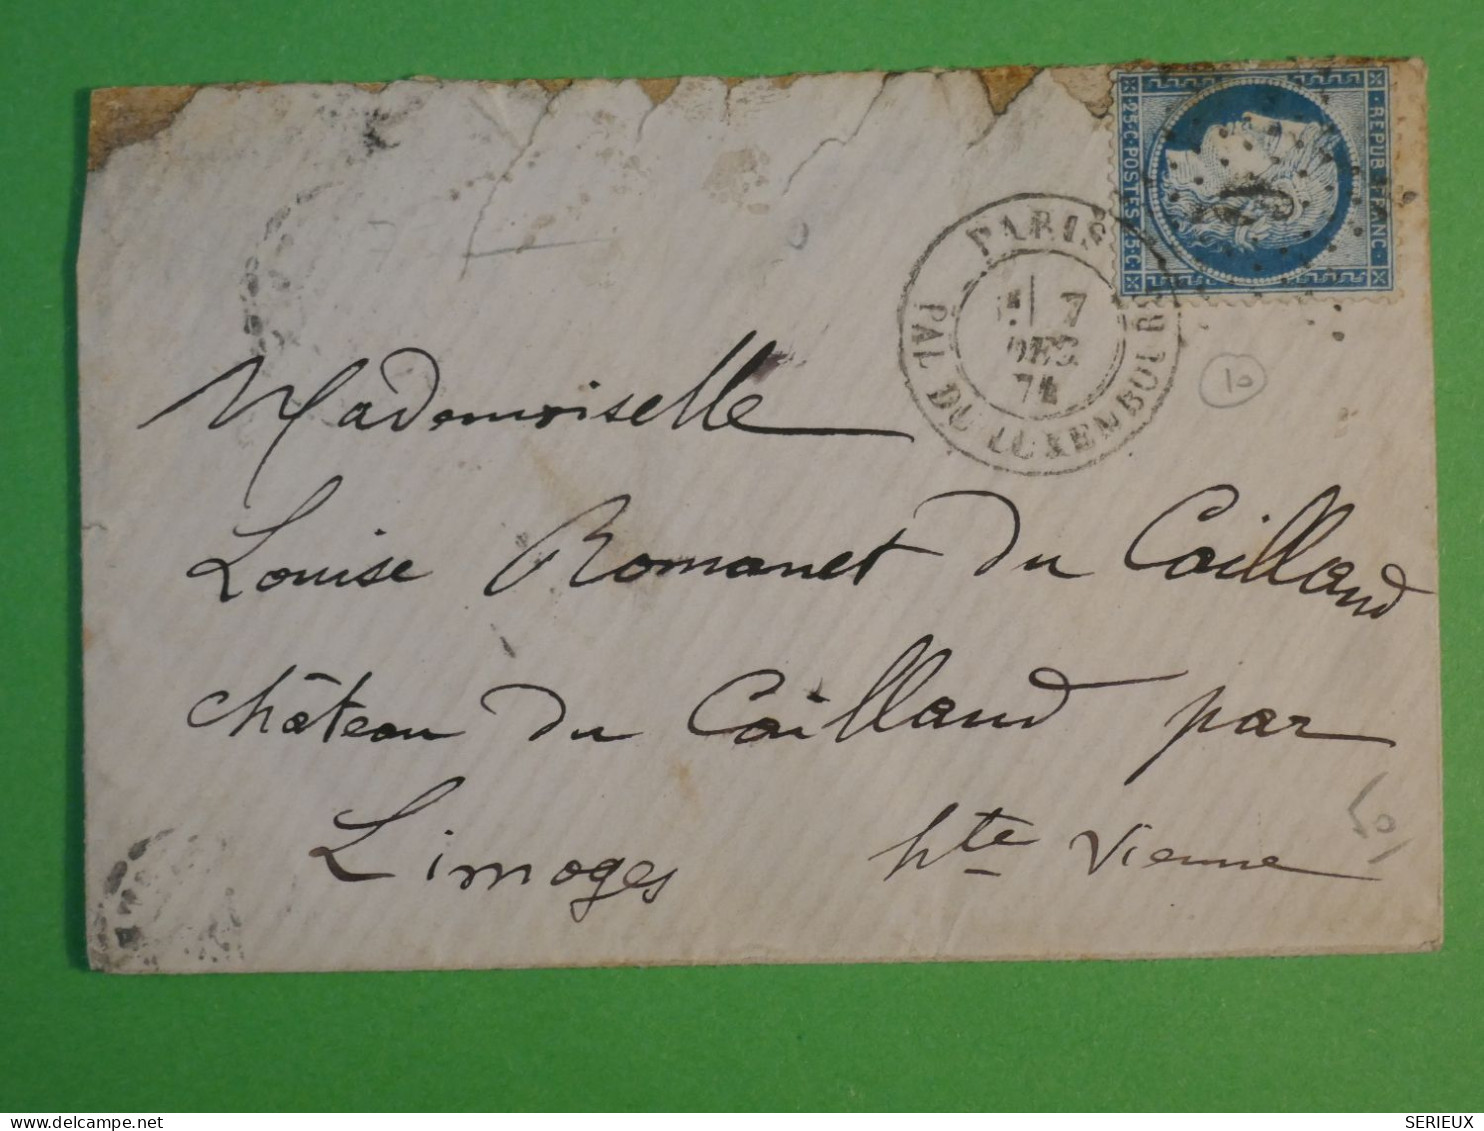 REPUB FRANC
25 C POSTES 25 C
PARIS
7
74
PAL DU LUXEMBOURG
10
Mademoiselle
Louise Romanet Du Caillaud
château Du Caillaud par
Limoges hte Vienne
SERIEUX